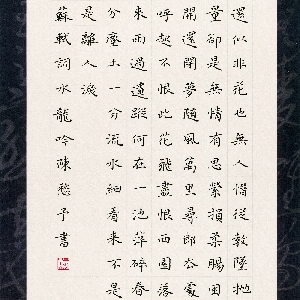 還似非花也無人惜從教墜拋
量卻是無情有思縈損柔腸困
開還閉夢隨風萬里尋郎去處
呼起不恨此花飛盡恨西園落
來雨過遺蹤何在一池萍碎春
分塵土一分流水細看來不是
是離人淚
蘇軾詞水龍吟陳予書